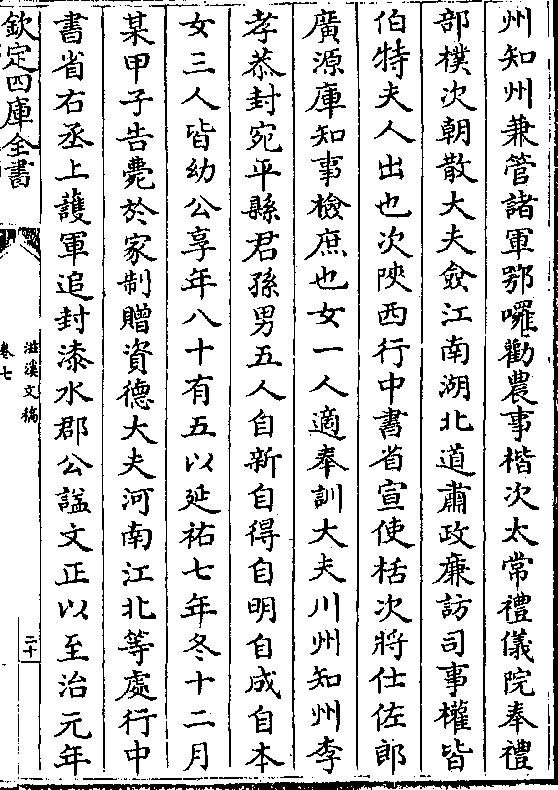 州知州兼管諸軍鄂囉勸農事楷次太常禮儀院奉禮
部樸次朝散大夫僉江南湖北道肅政廉訪司事權皆
伯特夫人出也次陜西行中書省宣使栝次將仕佐郎
廣源庫知事檢庶也女一人適奉訓大夫川州知州李
孝恭封宛平縣君孫男五人自新自得自明自成自本
女三人皆幼公享年八十有五以延祐七年冬十二月
某甲子告薨於家制贈資德大夫河南江北等處行中
書省右丞上護軍追封漆水郡公諡文正以至治元年
欽定四庫全書
滋溪文稿
卷七
二十